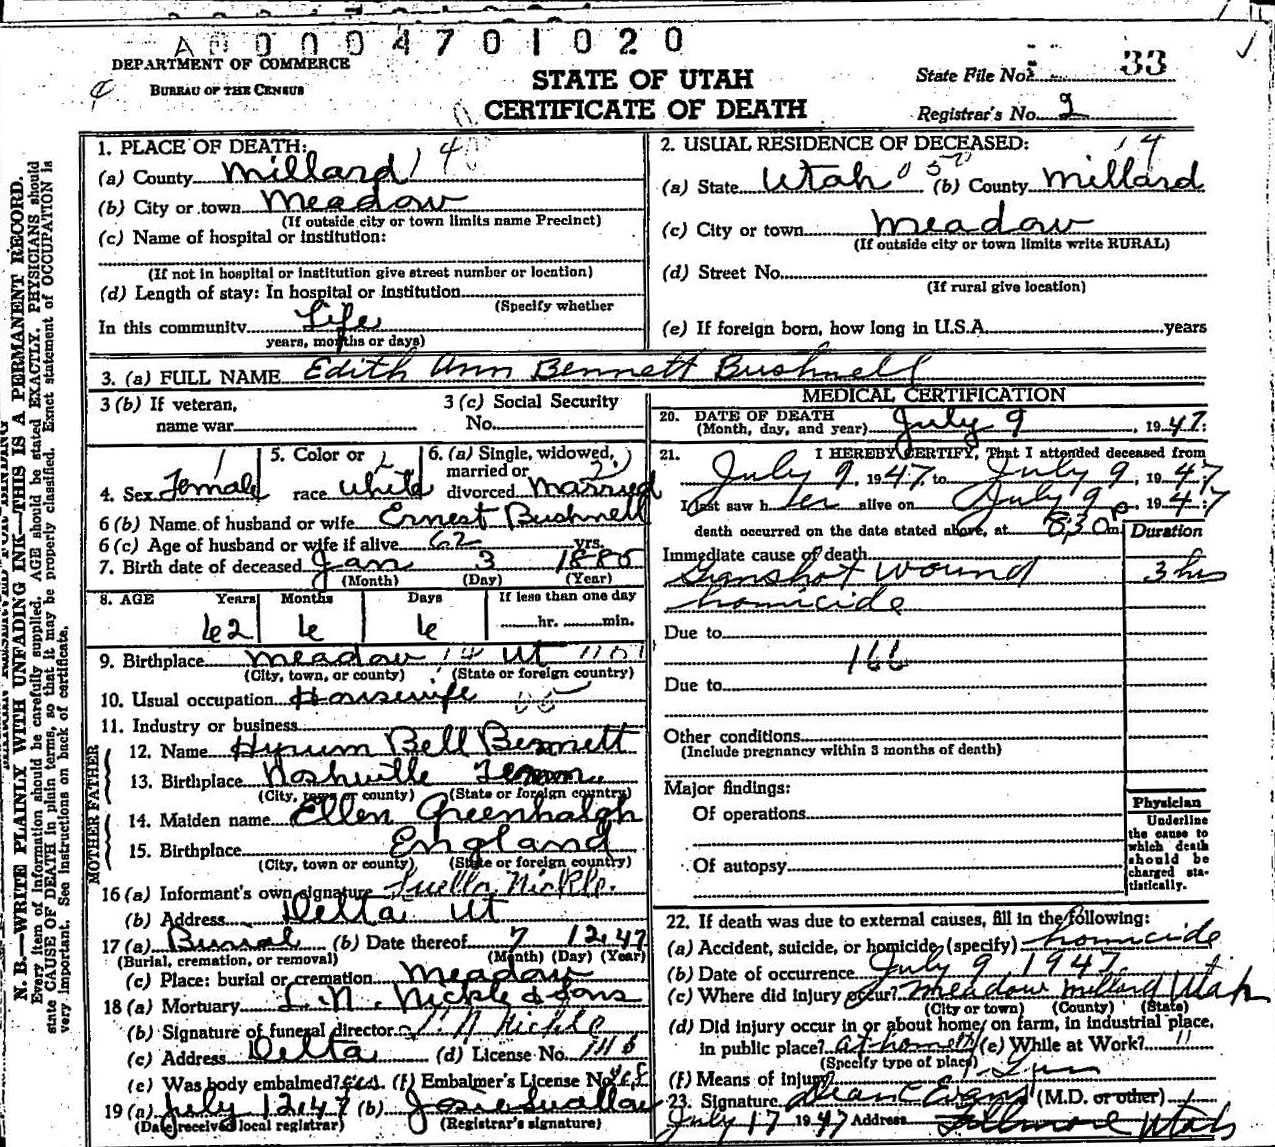 A 0 0 0 0 4 7 0 1 0 2 0
DEPARTMENT OF COMMERCE
BUREAU OF THE CENSUS
STATE OF UTAH
CERTIFICATE OF DEATH
State File No. 33
Registrar's No. 2
N. B.—WRITE PLAINLY WITH UNFADING INK—THIS IS A PERMANENT RECORD.
Every item of information should be carefully supplied. AGE should be stated EXACTLY. PHYSICIANS should
state CAUSE OF DEATH in plain terms, so that it may be properly classified. Exact statement of OCCUPATION is
very important. See instructions on back of certificate.
1. PLACE OF DEATH:
(a) County Millard 14
(b) City or town Meadow
(If outside city or town limits name Precinct)
(c) Name of hospital or institution:
(If not in hospital or institution give street number or location)
(d) Length of stay: In hospital or institution
(Specify whether
In this community Life
years, months or days)
2. USUAL RESIDENCE OF DECEASED: 14
(a) State Utah (b) County Millard
(c) City or town Meadow
(If outside city or town limits write RURAL)
(d) Street No.
(If rural give location)
(e) If foreign born, how long in U.S.A. years
3. (a) FULL NAME Edith Ann Bennett Bushnell
3 (b) If veteran,
name war
3 (c) Social Security
No.
4. Sex Female
5. Color or
race White
6. (a) Single, widowed,
married or
divorced Married
6 (b) Name of husband or wife Ernest Bushnell
6 (c) Age of husband or wife if alive 62 yrs.
7. Birth date of deceased Jan 3 1885
(Month) (Day) (Year)
8. AGE Years Months Days If less than one day
62 6 6 hr. min.
9. Birthplace Meadow Ut
(City, town, or county) (State or foreign country)
10. Usual occupation Housewife
11. Industry or business
FATHER
12. Name Hyrum Bell Bennett
13. Birthplace Nashville Tenn.
(City, town or county) (State or foreign country)
MOTHER
14. Maiden name Ellen Greenhalgh
15. Birthplace England
(City, town or county) (State or foreign country)
16 (a) Informant's own signature Luella Nickle.
(b) Address Delta Ut
17 (a) Burial (b) Date thereof 7 12 47
(Burial, cremation, or removal) (Month) (Day) (Year)
(c) Place: burial or cremation Meadow
18 (a) Mortuary L. N. Nickle & Sons
(b) Signature of funeral director L. N. Nickle
(c) Address Delta (d) License No.
(e) Was body embalmed? yes (f) Embalmer's License No.
19 (a) July 12 47 (b) Josie Swallow
(Date received local registrar) (Registrar's signature)
MEDICAL CERTIFICATION
20. DATE OF DEATH
(Month, day, and year) July 9, 1947.
21. I HEREBY CERTIFY, That I attended deceased from
July 9, 1947 to July 9, 1947
I last saw her alive on July 9, 1947
death occurred on the date stated above, at 8:30 p m
Duration
Immediate cause of death
Gunshot wound 3 hrs
homicide
Due to
166
Due to
Other conditions
(Include pregnancy within 3 months of death)
Major findings:
Of operations
Of autopsy
Physician
Underline
the cause to
which death
should be
charged sta-
tistically.
22. If death was due to external causes, fill in the following:
(a) Accident, suicide, or homicide (specify) homicide
(b) Date of occurrence July 9 1947
(c) Where did injury occur? Meadow Millard Utah
(City or town) (County) (State)
(d) Did injury occur in or about home, on farm, in industrial place,
in public place? at home (e) While at Work? "
(Specify type of place)
(f) Means of injury Gun
23. Signature Dean C Evans (M.D. or other)
July 17 1947 Address Fillmore Utah